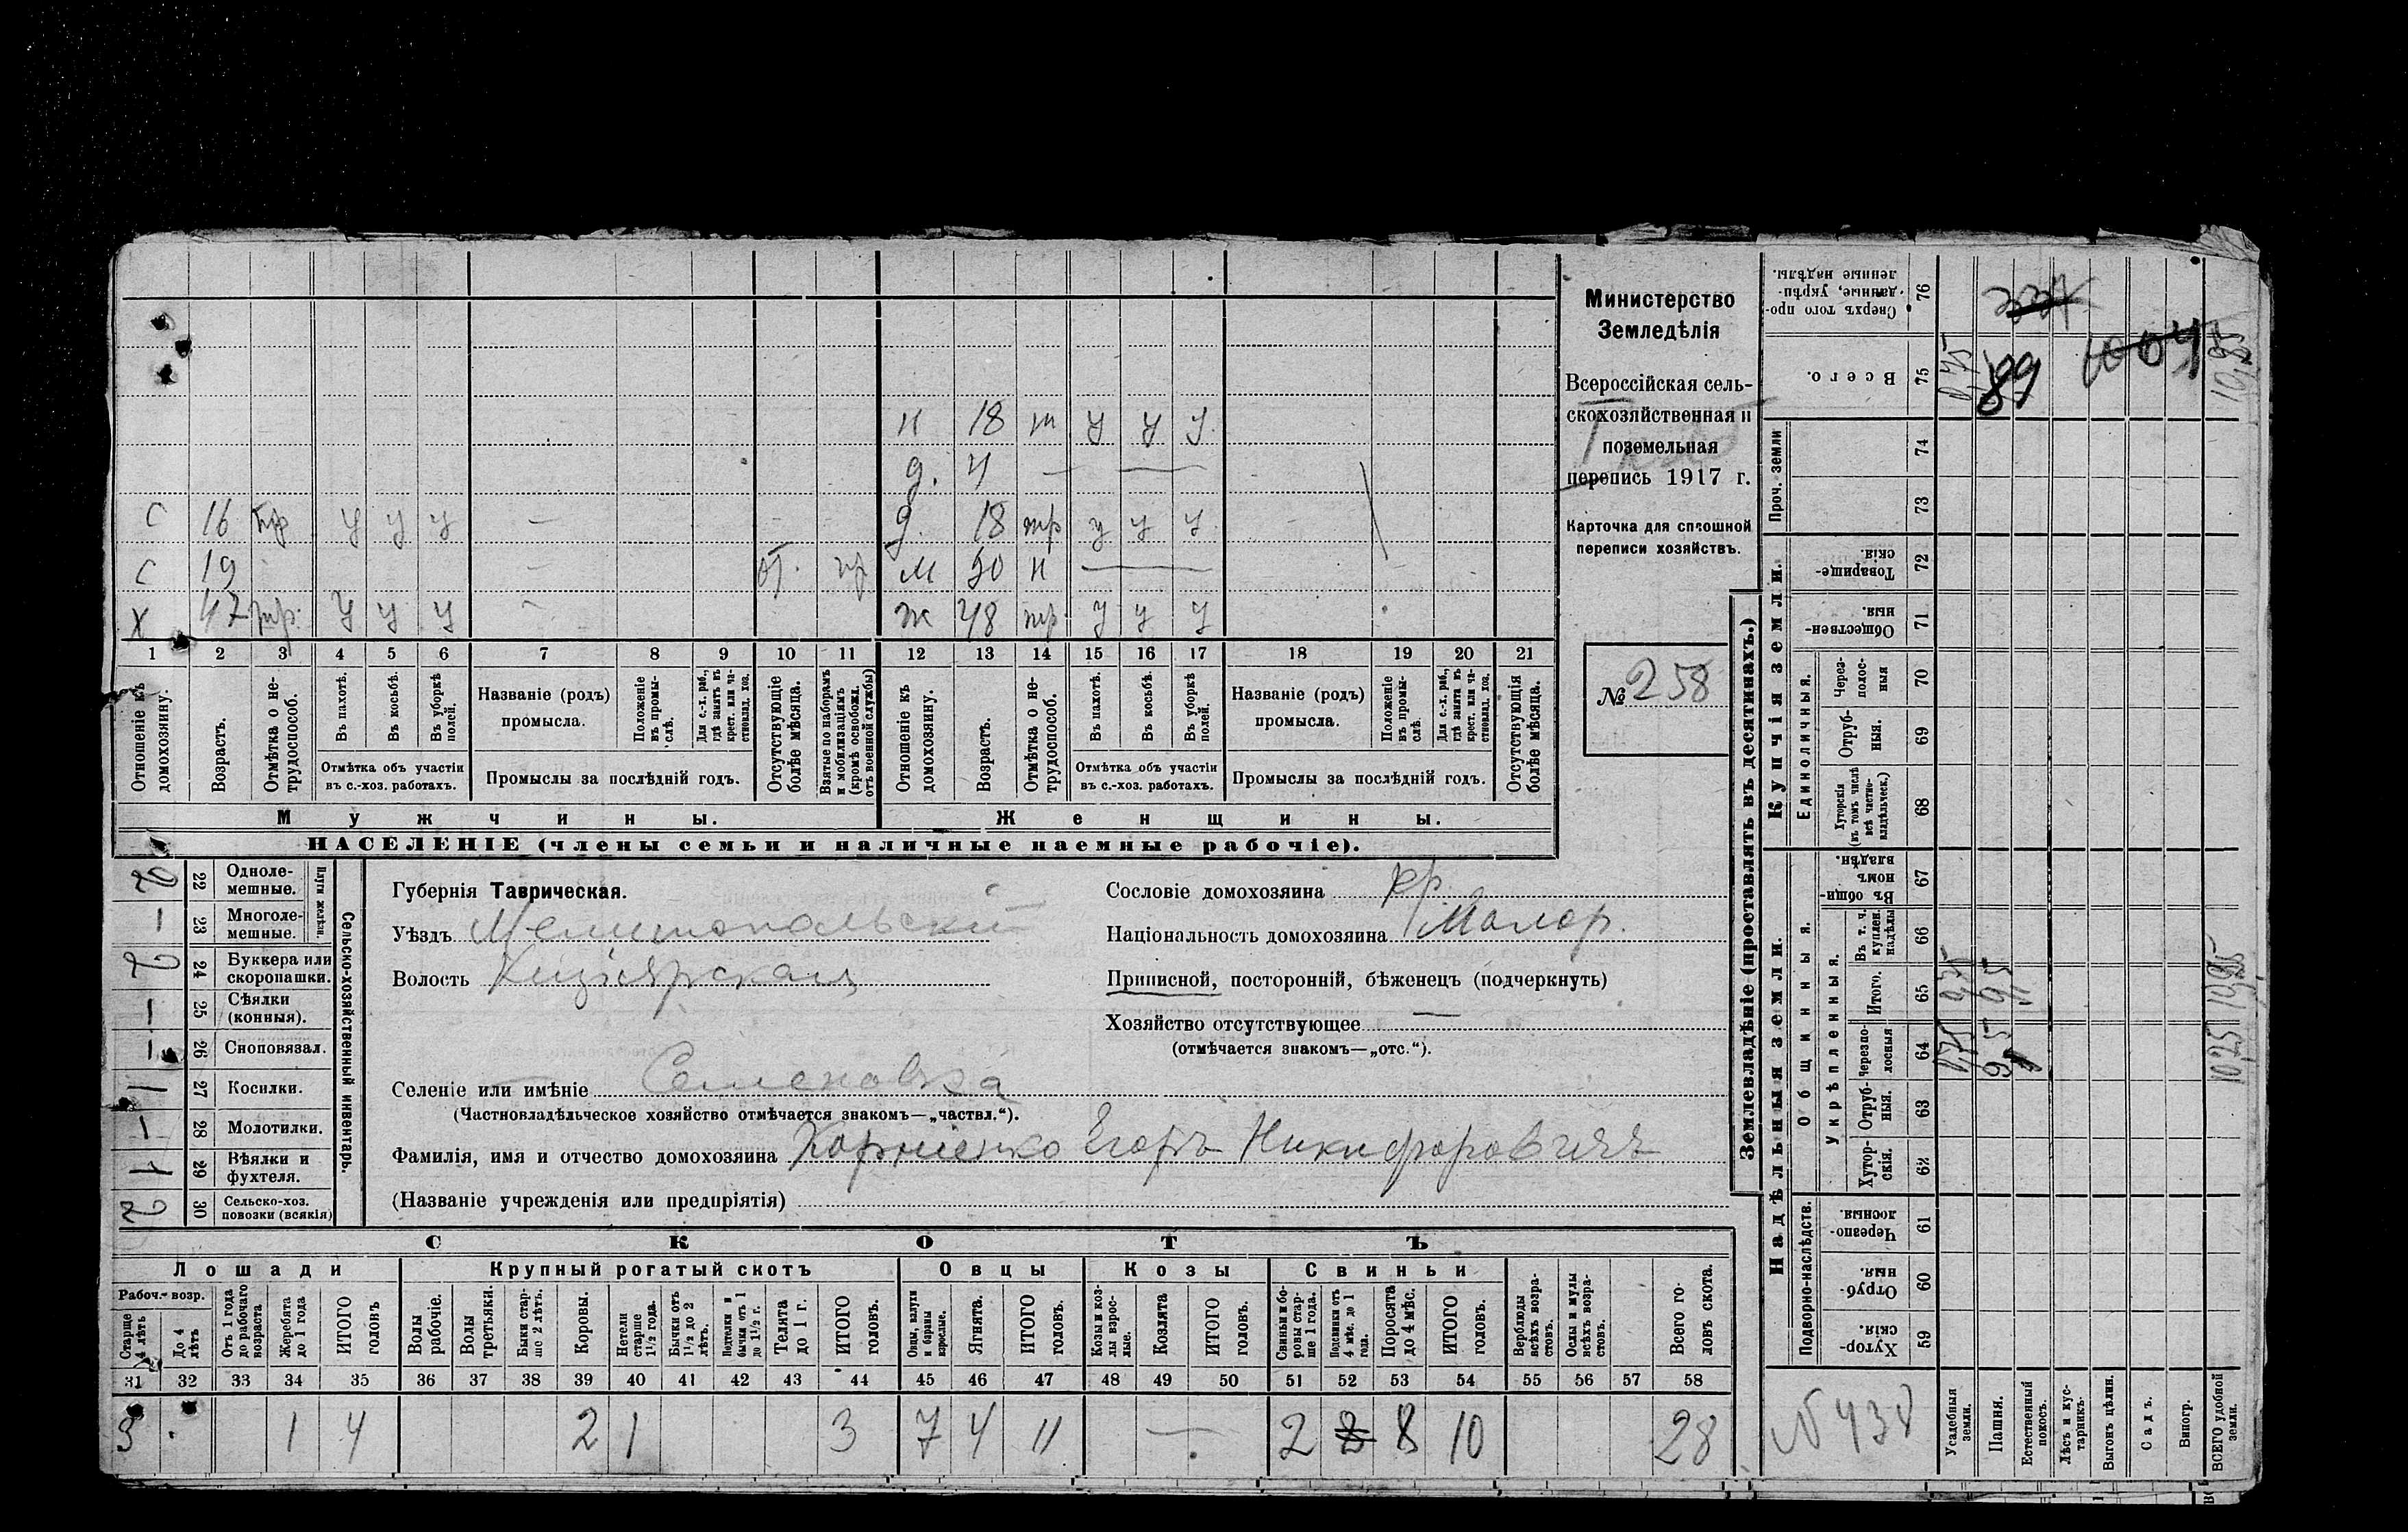 Министерство
Земледѣлія
Всероссійская сель-
скохозяйственная и
поземельная
перепись 1917 г.
Карточка для сплошной
переписи хозяйствъ.
№ 258
н 18 т у у у
д. 4 —
с 16 тр у у у — д. 18 тр у у у
с 19 — от. м н
х 47 тр. у у у — ж 48 тр. у у у
1 2 3 4 5 6 7 8 9 10 11 12 13 14 15 16 17 18 19 20 21
Отношеніе къ домохозяину.
Возрастъ.
Отмѣтка о не-трудоспособ.
Въ пахотѣ.
Въ косьбѣ.
Въ уборкѣ полей.
Названіе (родъ) промысла.
Положеніе въ промы-слѣ.
Для с.-х. раб., гдѣ занятъ въ крест. или ча-стновлад. хоз.
Отсутствующіе болѣе мѣсяца.
Взятые по наборамъ и мобилизаціямъ (кромѣ освобожд. отъ военной службы)
Отношеніе къ домохозяину.
Возрастъ.
Отмѣтка о не-трудоспособ.
Въ пахотѣ.
Въ косьбѣ.
Въ уборкѣ полей.
Названіе (родъ) промысла.
Положеніе въ промы-слѣ.
Для с.-х. раб., гдѣ занята въ крест. или ча-стновлад. хоз.
Отсутствующія болѣе мѣсяца.
Отмѣтка объ участіи въ с.-хоз. работахъ.
Промыслы за послѣдній годъ.
Отмѣтка объ участіи въ с.-хоз. работахъ.
Промыслы за послѣдній годъ.
Мужчины. Женщины.
НАСЕЛЕНІЕ (члены семьи и наличные наемные рабочіе).
Сельско-хозяйственный инвентарь.
Плуги желѣзн.
2 22 Одноле-мешные.
— 23 Многоле-мешные.
2 24 Буккера или скоропашки.
— 25 Сѣялки (конныя).
— 26 Сноповязал.
1 27 Косилки.
— 28 Молотилки.
1 29 Вѣялки и фухтеля.
2 30 Сельско-хоз. повозки (всякія)
Губернія Таврическая.
Уѣздъ Мелитопольскій
Волость Кизіярская
Селеніе или имѣніе Семеновка
(Частновладѣльческое хозяйство отмѣчается знакомъ—„частвл.“).
Фамилія, имя и отчество домохозяина Корніенко Егоръ Никифоровичъ
(Названіе учрежденія или предпріятія)
Сословіе домохозяина кр.
Національность домохозяина Малор.
Приписной, посторонній, бѣженецъ (подчеркнуть)
Хозяйство отсутствующее —
(отмѣчается знакомъ—„отс.“).
СКОТЪ
Лошади Крупный рогатый скотъ Овцы Козы Свиньи
Рабоч. возр.
Старше 4 лѣтъ
До 4 лѣтъ
Отъ 1 года до рабочаго возраста
Жеребята до 1 года
ИТОГО головъ
Волы рабочіе.
Волы третьяки.
Быки стар-ше 2 лѣтъ.
Коровы.
Нетели старше 1½ года.
Бычки отъ 1½ до 2 лѣтъ.
Подтелки и бычки отъ 1 до 1½ г.
Телята до 1 г.
ИТОГО головъ.
Овцы, валухи и бараны взрослые.
Ягнята.
ИТОГО головъ.
Козы и коз-лы взрос-лые.
Козлята
ИТОГО головъ.
Свиньи и бо-ровы стар-ше 1 года.
Подсвинки отъ 4 мѣс. до 1 года.
Поросята до 4 мѣс.
ИТОГО головъ.
Верблюды всѣхъ возра-стовъ.
Ослы и мулы всѣхъ возра-стовъ.
Всего го-ловъ скота.
31 32 33 34 35 36 37 38 39 40 41 42 43 44 45 46 47 48 49 50 51 52 53 54 55 56 57 58
3 1 4 2 1 3 7 4 11 — 2 8 10 28
Землевладѣніе (проставлять въ десятинахъ.)
Надѣльныя земли. Купчія земли.
Подворно-наслѣдств.
Общинныя.
Укрѣпленныя.
Единоличныя.
Проч. земли
Хутор-скія. 59
Отруб-ныя. 60
Черезпо-лосныя. 61
Хутор-скія. 62
Отруб-ныя. 63
Черезпо-лосныя 64
Итого. 65
Въ т. ч. куплен. надѣлы 66
Въ общи-номъ владѣн. 67
Хуторскія (въ томъ числѣ всѣ частно-владѣльческ.) 68
Отруб-ныя. 69
Через-полос-ныя 70
Обществен-ныя. 71
Товарище-скія. 72
73
74
Всего. 75
Сверхъ того про-данные, укрѣп-ленные надѣлы. 76
№ 438
Усадебныя земли.
Пашня.
Естественный покосъ.
Лѣсъ и кус-тарникъ.
Выгонъ цѣлин.
Садъ.
Виногр.
ВСЕГО удобной земли.
0,75
89
10,25